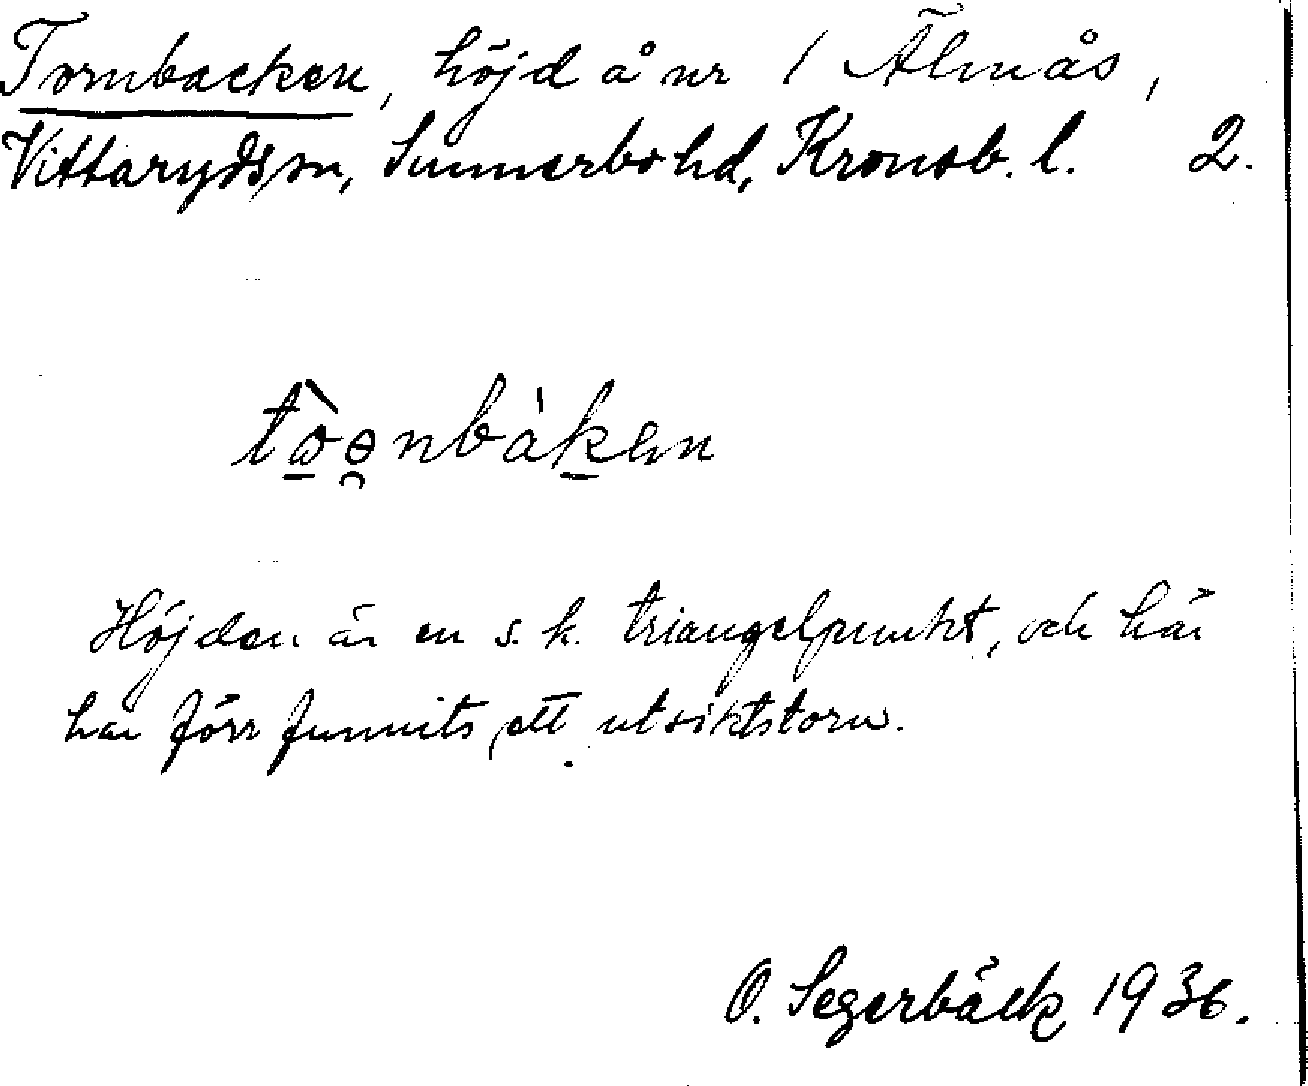 Tornbacken, höjd å nr 1 Älmås,
Vittarydssn, Sunnerbo hd, Kronob. l. 2.
tɷ̀ɵnbàken
Höjden är en s.k. triangelpunkt, och här
har förr funnits ett utsiktstorn.
O. Segerbäck 1936.